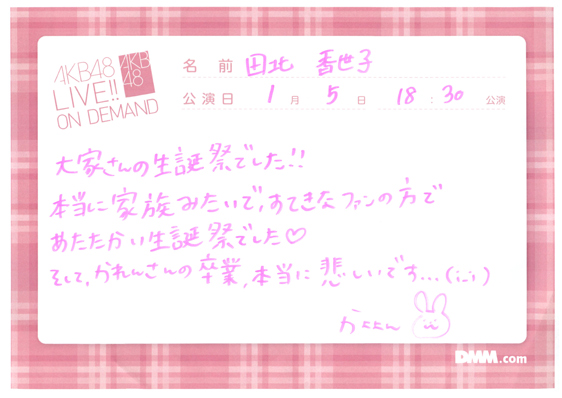 AKB48
LIVE!!
ON DEMAND
AKB
48
名前 田北 香世子
公演日 1月 5日 18:30 公演
大家さんの生誕祭でした!!
本当に家族みたいで、すてきなファンの方で
あたたかい生誕祭でした♡
そして、かれんさんの卒業、本当に悲しいです...(;_;)
かよよん
DMM.com